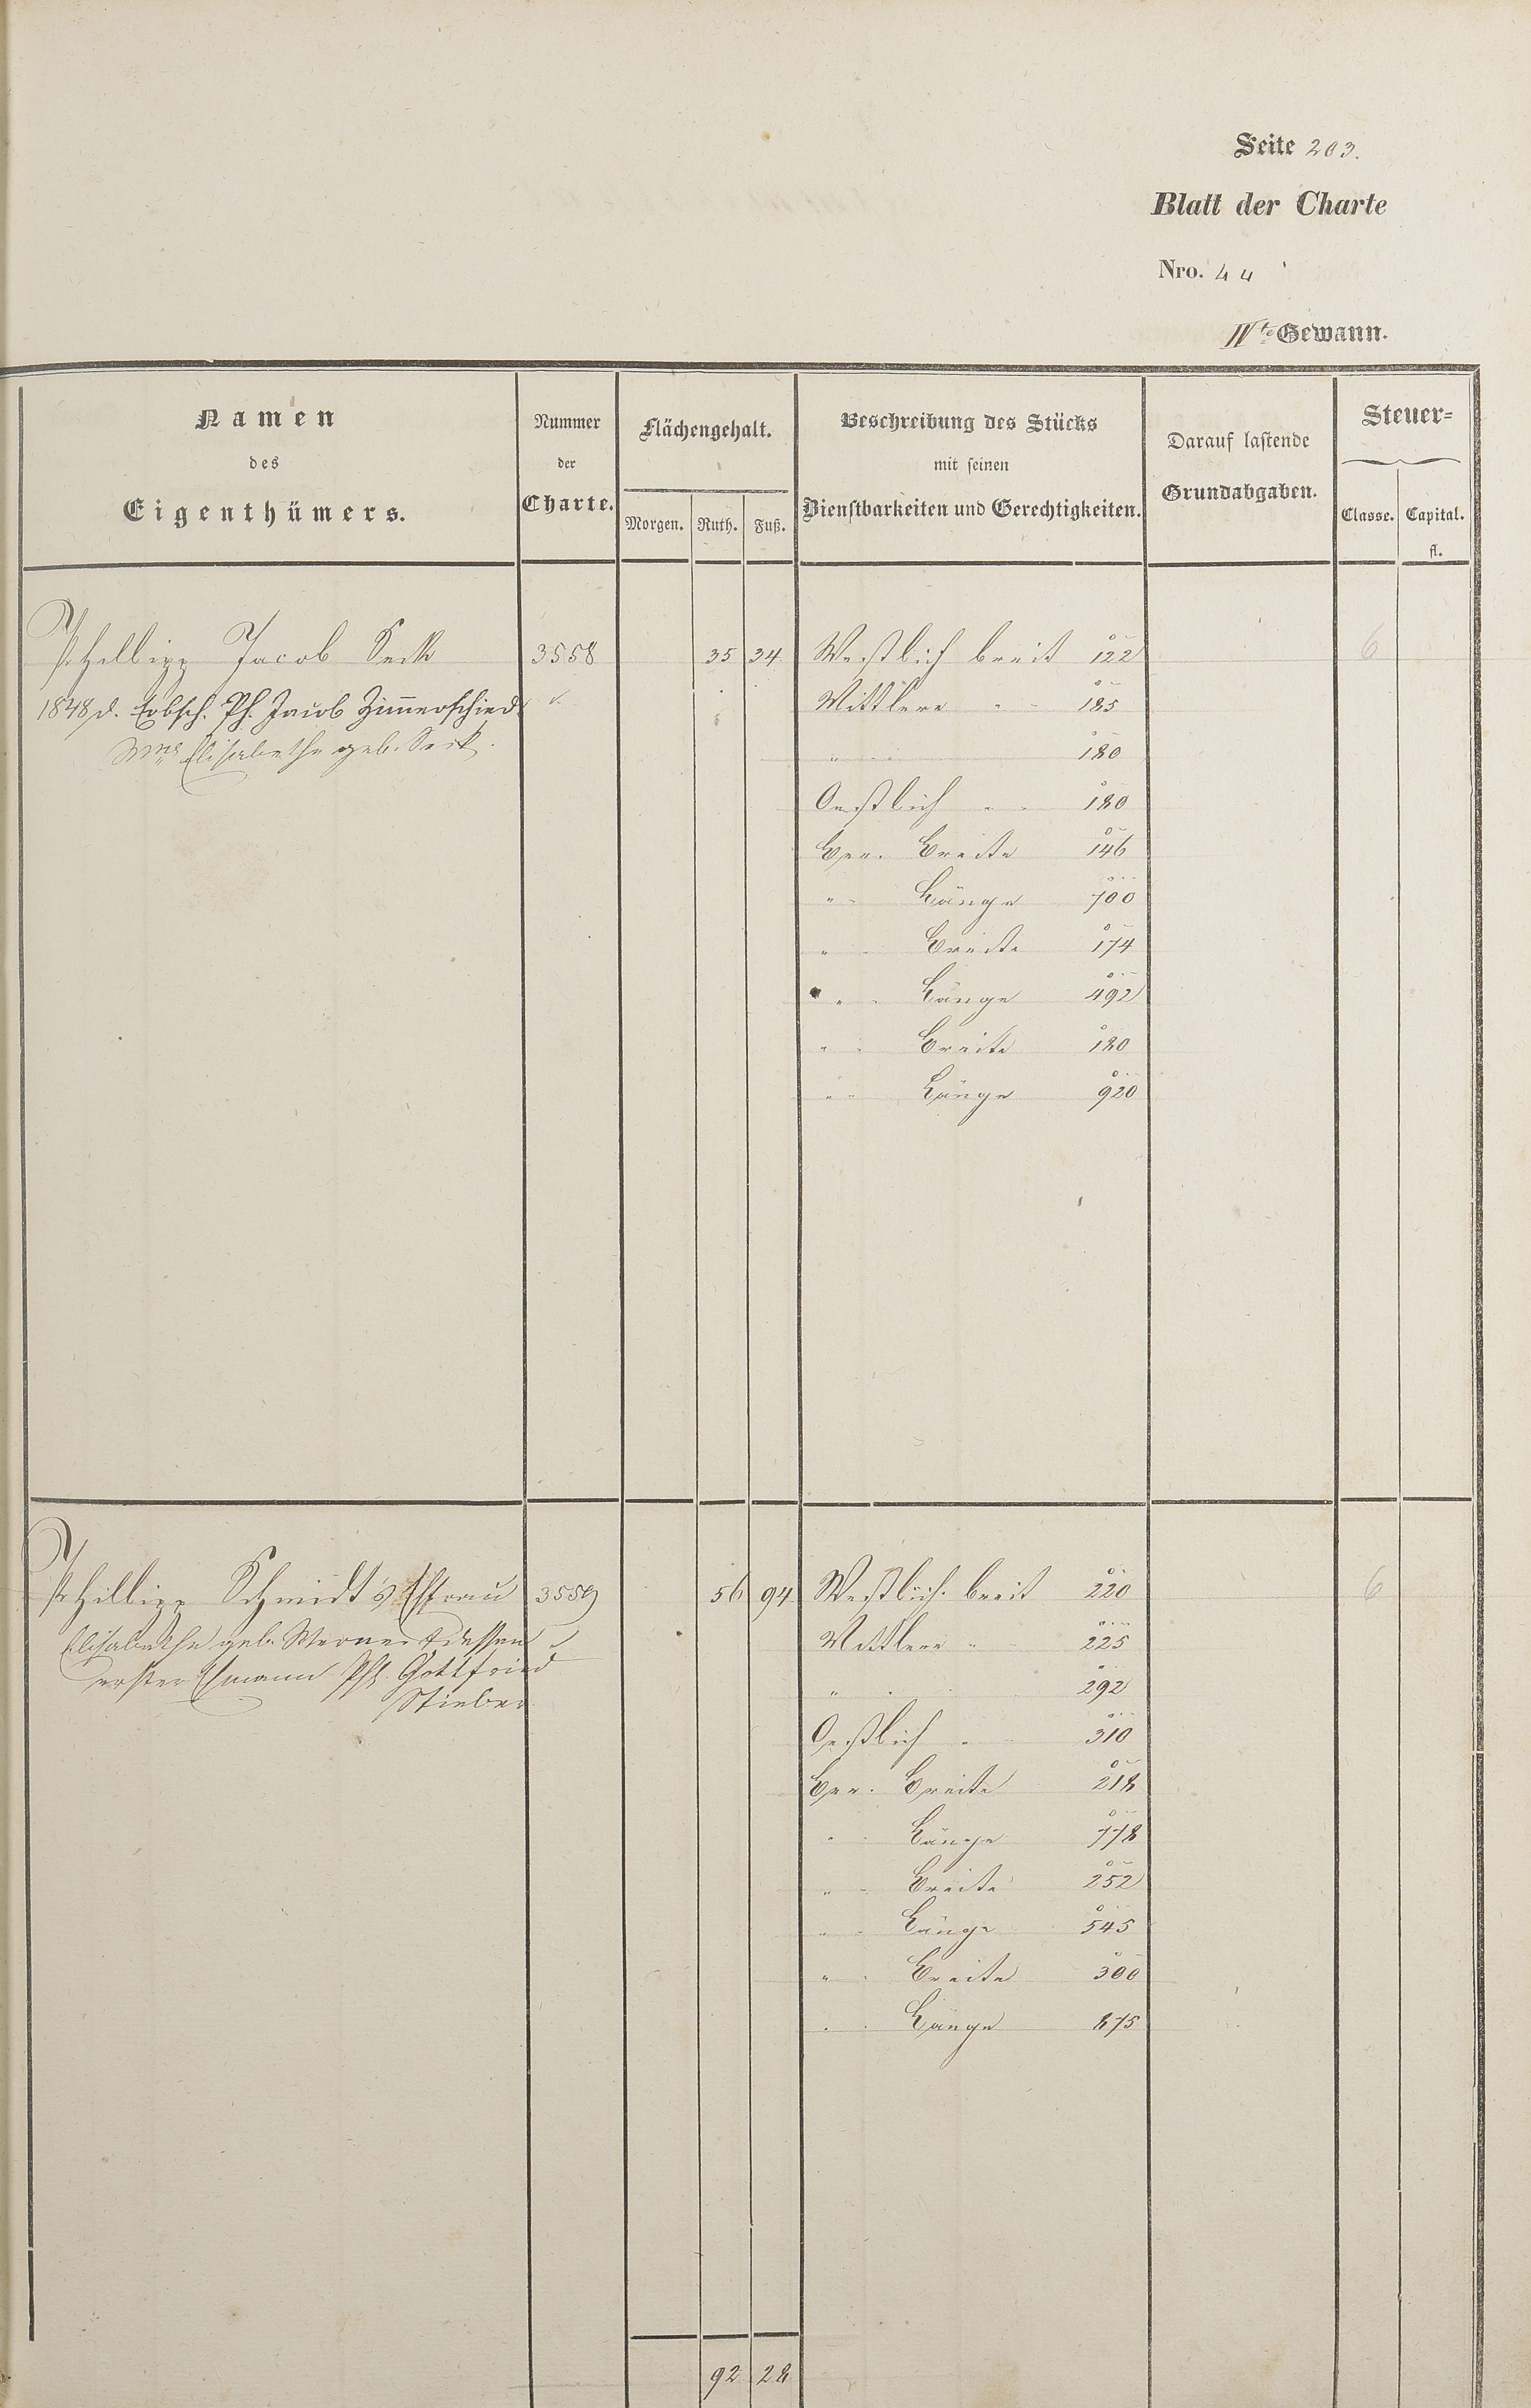 Seite 203.
Blatt der Charte
Nro. 44
IVte Gewann.
Namen des Eigenthümers.
Nummer der Charte.
Flächengehalt.
Morgen. Ruth. Fuß.
Beschreibung des Stücks mit seinen Dienstbarkeiten und Gerechtigkeiten.
Darauf lastende Grundabgaben.
Steuer=
Classe. Capital. fl.
Phillipp Jacob Seck 3558 35 34 Westlich breit 122 6
1848 d. Erbsch. Ph. Jacob Zimmerschied Mittlere " 185
Elisabethe geb. Seck. " 180
Oestlich " 180
Ger. Breite 146
" Länge 700
" Breite 174
" Länge 492
" Breite 180
" Länge 920
Phillipp Schmidt's Ehfrau 3559 56 94 Westlich breit 220 6
Elisabethe geb. Werner & dessen Mittlere " 225
erster Ehmann Gottfried " 292
Stieber
Oestlich " 310
Ger. Breite 218
" Länge 778
" Breite 252
" Länge 545
" Breite 300
" Länge 875
92 28